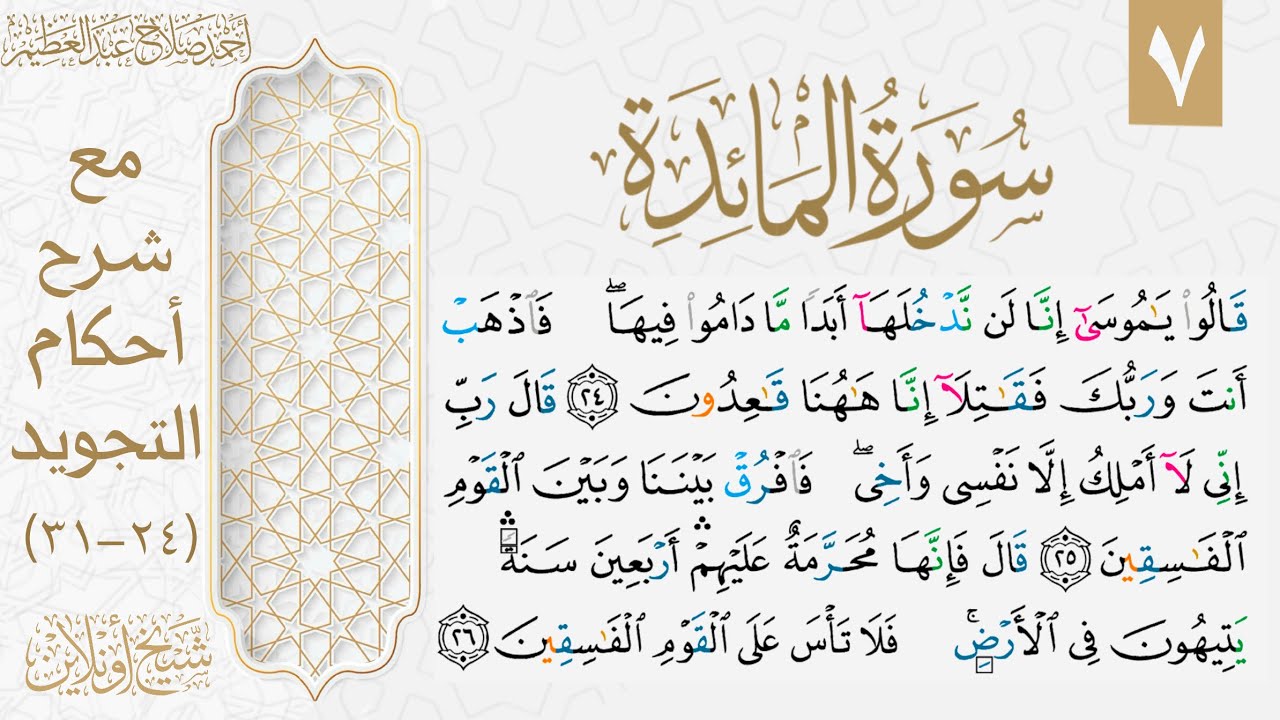 ٧
سُورَةُ المَائِدَةِ
أحمد صلاح عبد العظيم
مع
شرح
أحكام
التجويد
(٢٤-٣١)
شيخ أونلاين
قَالُوا۟ يَـٰمُوسَىٰٓ إِنَّا لَن نَّدْخُلَهَآ أَبَدًا مَّا دَامُوا۟ فِيهَا ۖ فَٱذْهَبْ
أَنتَ وَرَبُّكَ فَقَـٰتِلَآ إِنَّا هَـٰهُنَا قَـٰعِدُونَ ٢٤ قَالَ رَبِّ
إِنِّى لَآ أَمْلِكُ إِلَّا نَفْسِى وَأَخِى ۖ فَٱفْرُقْ بَيْنَنَا وَبَيْنَ ٱلْقَوْمِ
ٱلْفَـٰسِقِينَ ٢٥ قَالَ فَإِنَّهَا مُحَرَّمَةٌ عَلَيْهِمْ ۛ أَرْبَعِينَ سَنَةً ۛ
يَتِيهُونَ فِى ٱلْأَرْضِ ۚ فَلَا تَأْسَ عَلَى ٱلْقَوْمِ ٱلْفَـٰسِقِينَ ٢٦